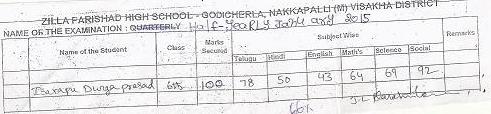 ZILLA PARISHAD HIGH SCHOOL - GODICHERLA, NAKKAPALLI (M) VISAKHA DISTRICT
NAME OF THE EXAMINATION : QUARTERLY Half-Yearly January 2015
Name of the Student Class Marks Secured Subject Wise Remarks
Telugu Hindi English Math's Science Social
Durga prasad 400 78 50 43 64 69 92
66%